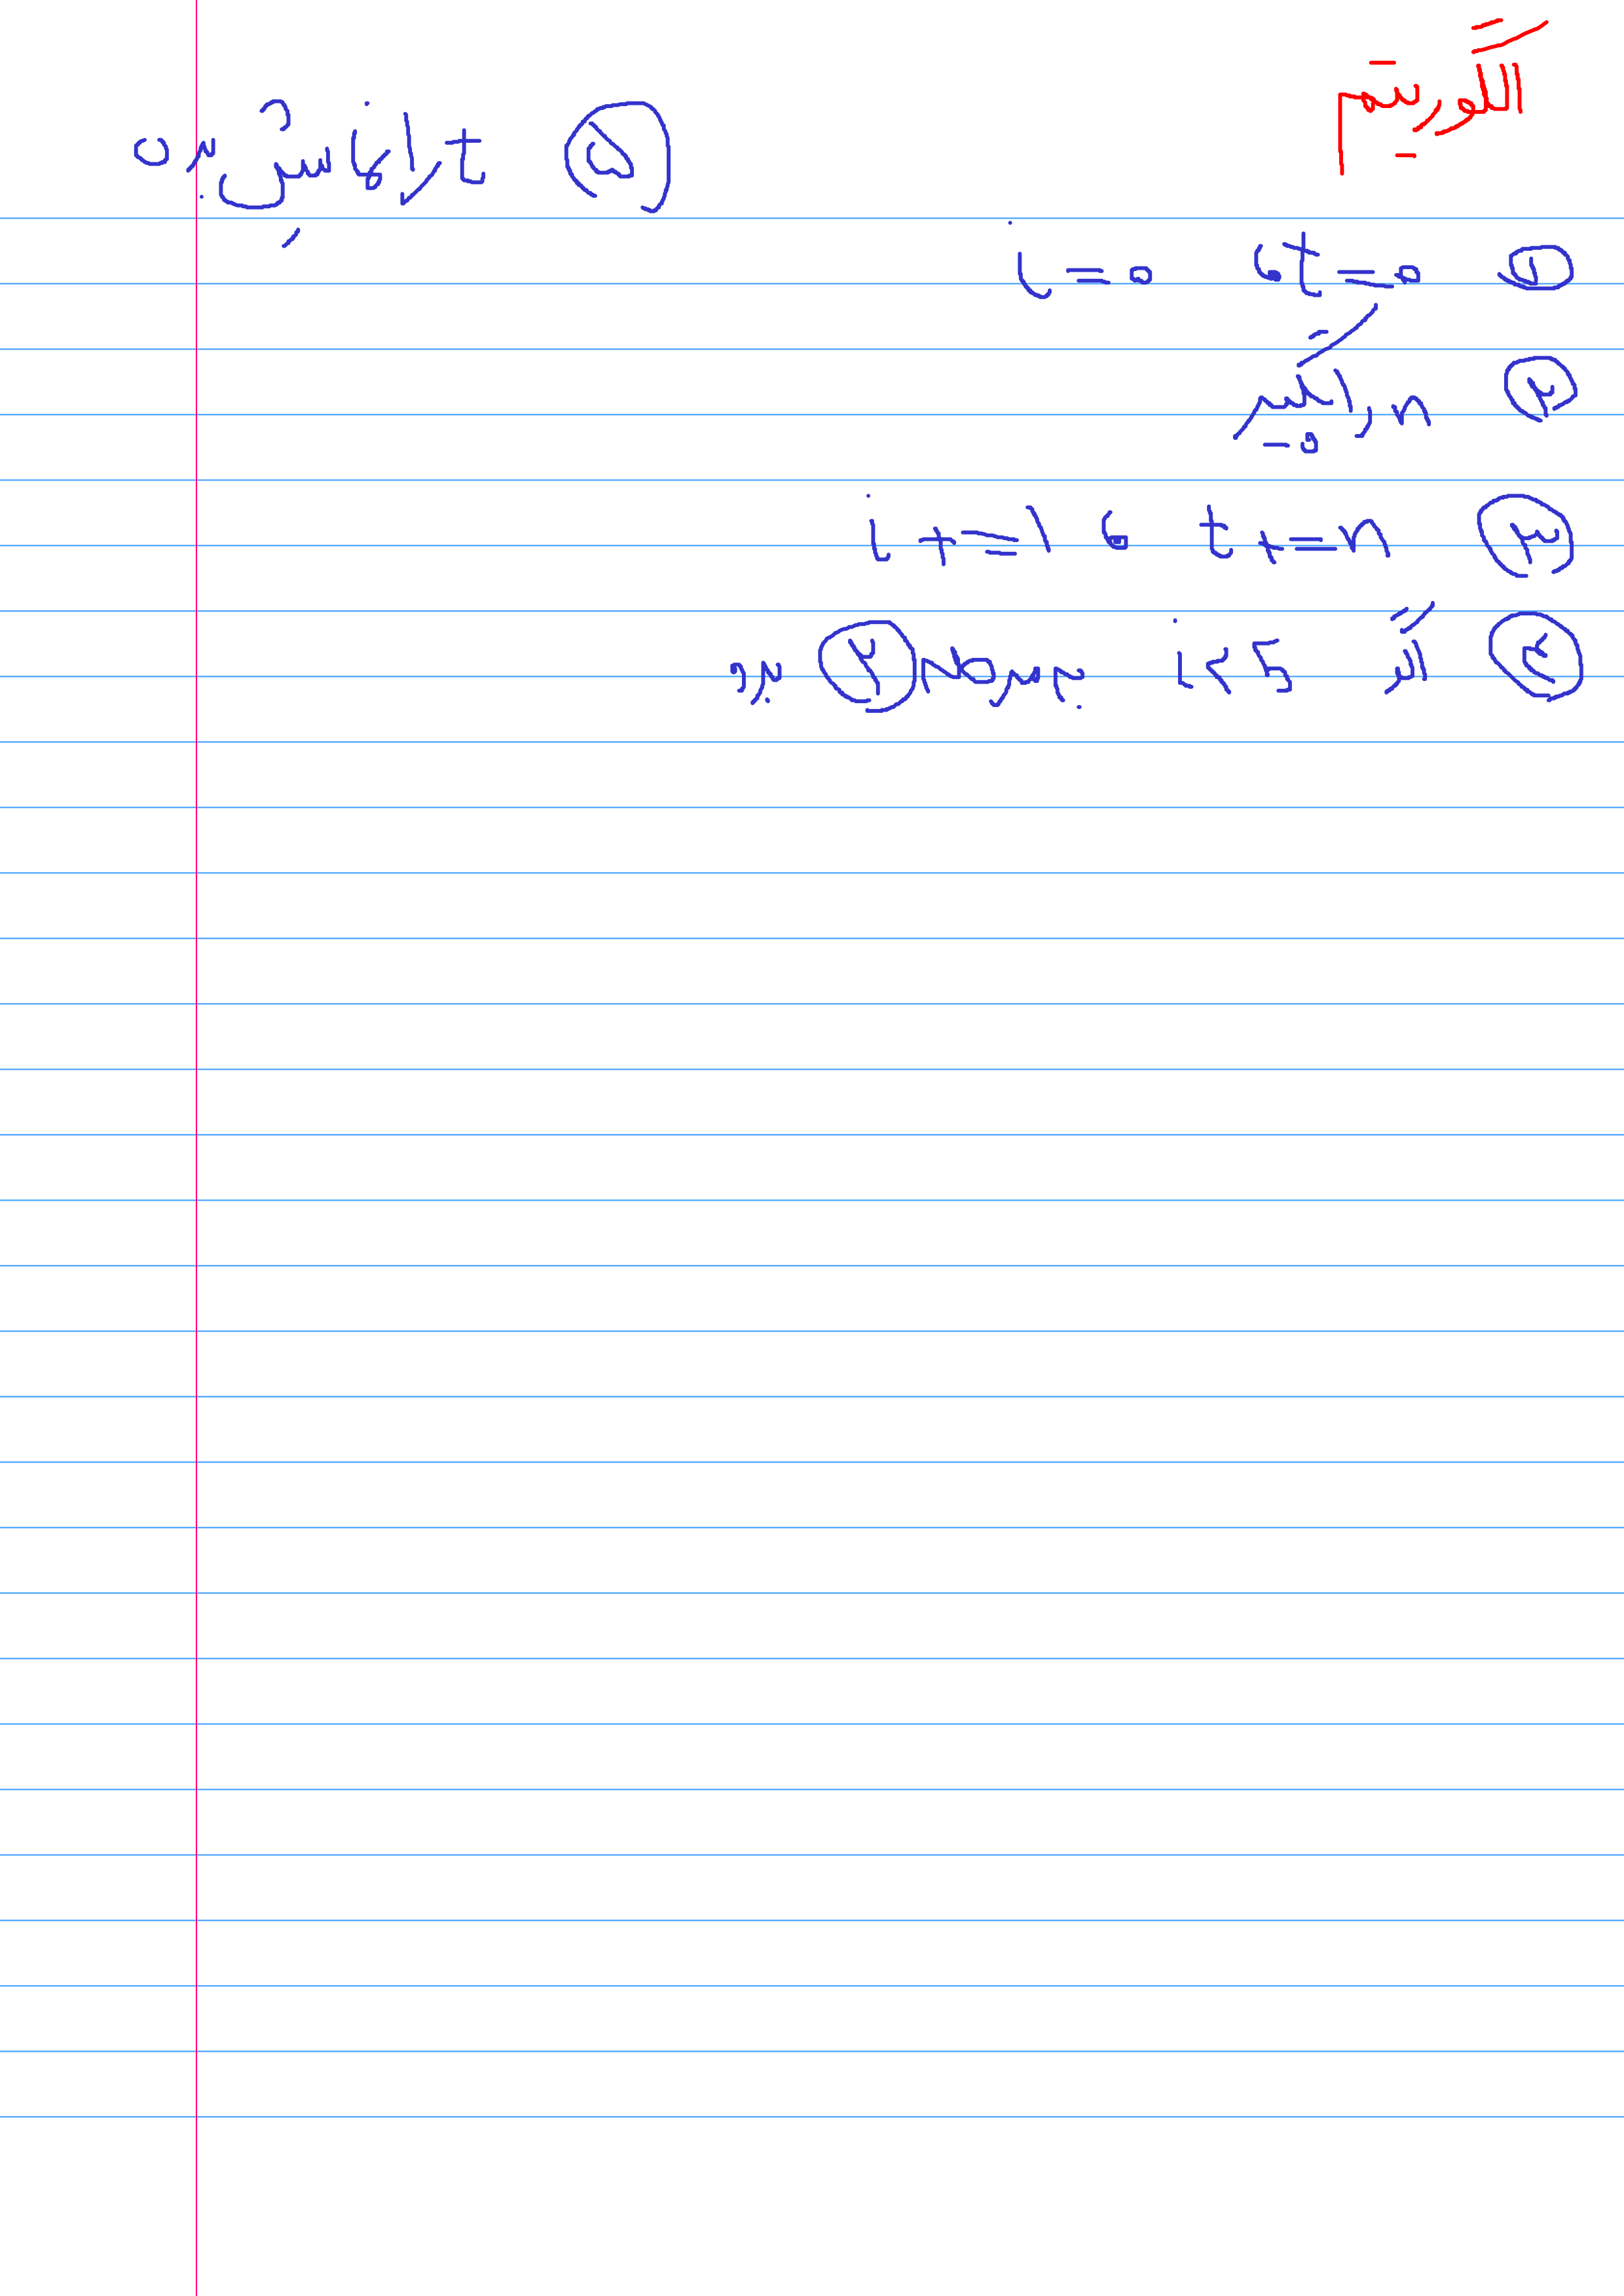 الگوریتم
① t=0 ، i=0
② n را بگیر
③ t+=n ، i+=1
④ اگر i<5 برو به مرحله ② برو
⑤ t را نمایش بده